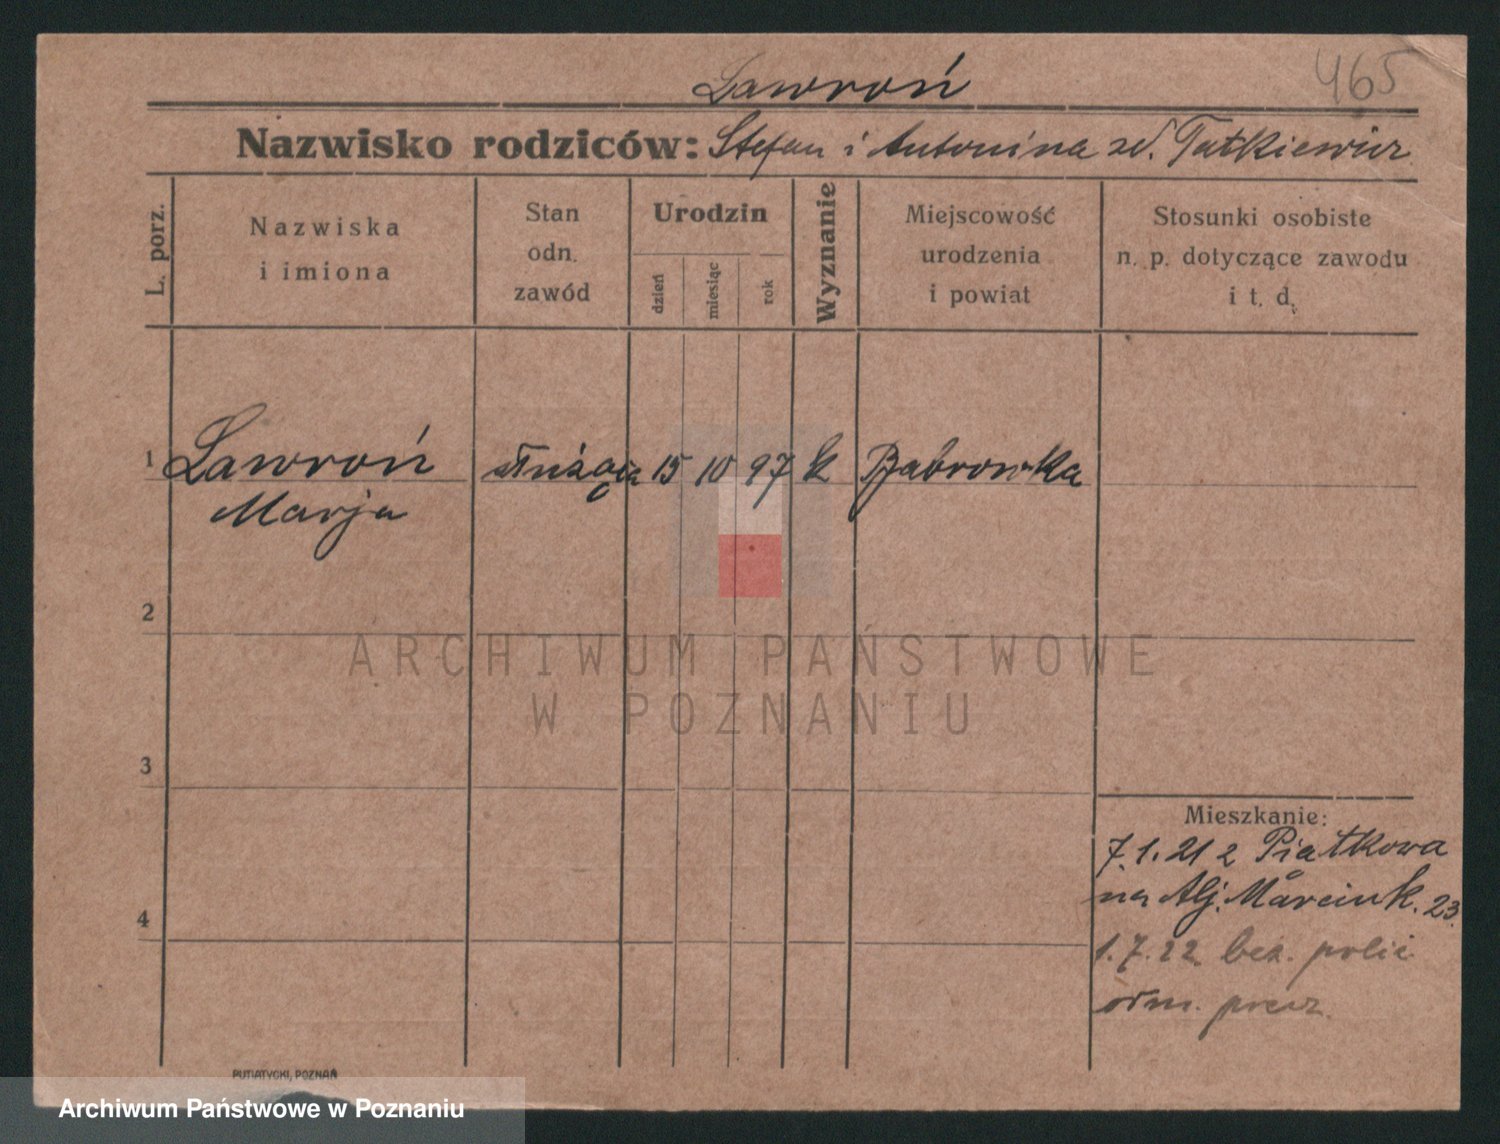 465
Lawroń
Nazwisko rodziców: Stefan i Antonina zd. Tatkiewicz
L. porz.
Nazwiska
i imiona
Stan
odn.
zawód
Urodzin
dzień
miesiąc
rok
Wyznanie
Miejscowość
urodzenia
i powiat
Stosunki osobiste
n. p. dotyczące zawodu
i t. d.
1 Lawroń służąca 15 10 97 k Dąbrowka
Marja
2
3
4
ARCHIWUM PAŃSTWOWE
W POZNANIU
Mieszkanie:
7.1.21 z Piątkowa
na Alj. Marcink. 23.
1.7.22 bez. polic
odm. precz.
PUTIATYCKI, POZNAŃ
Archiwum Państwowe w Poznaniu